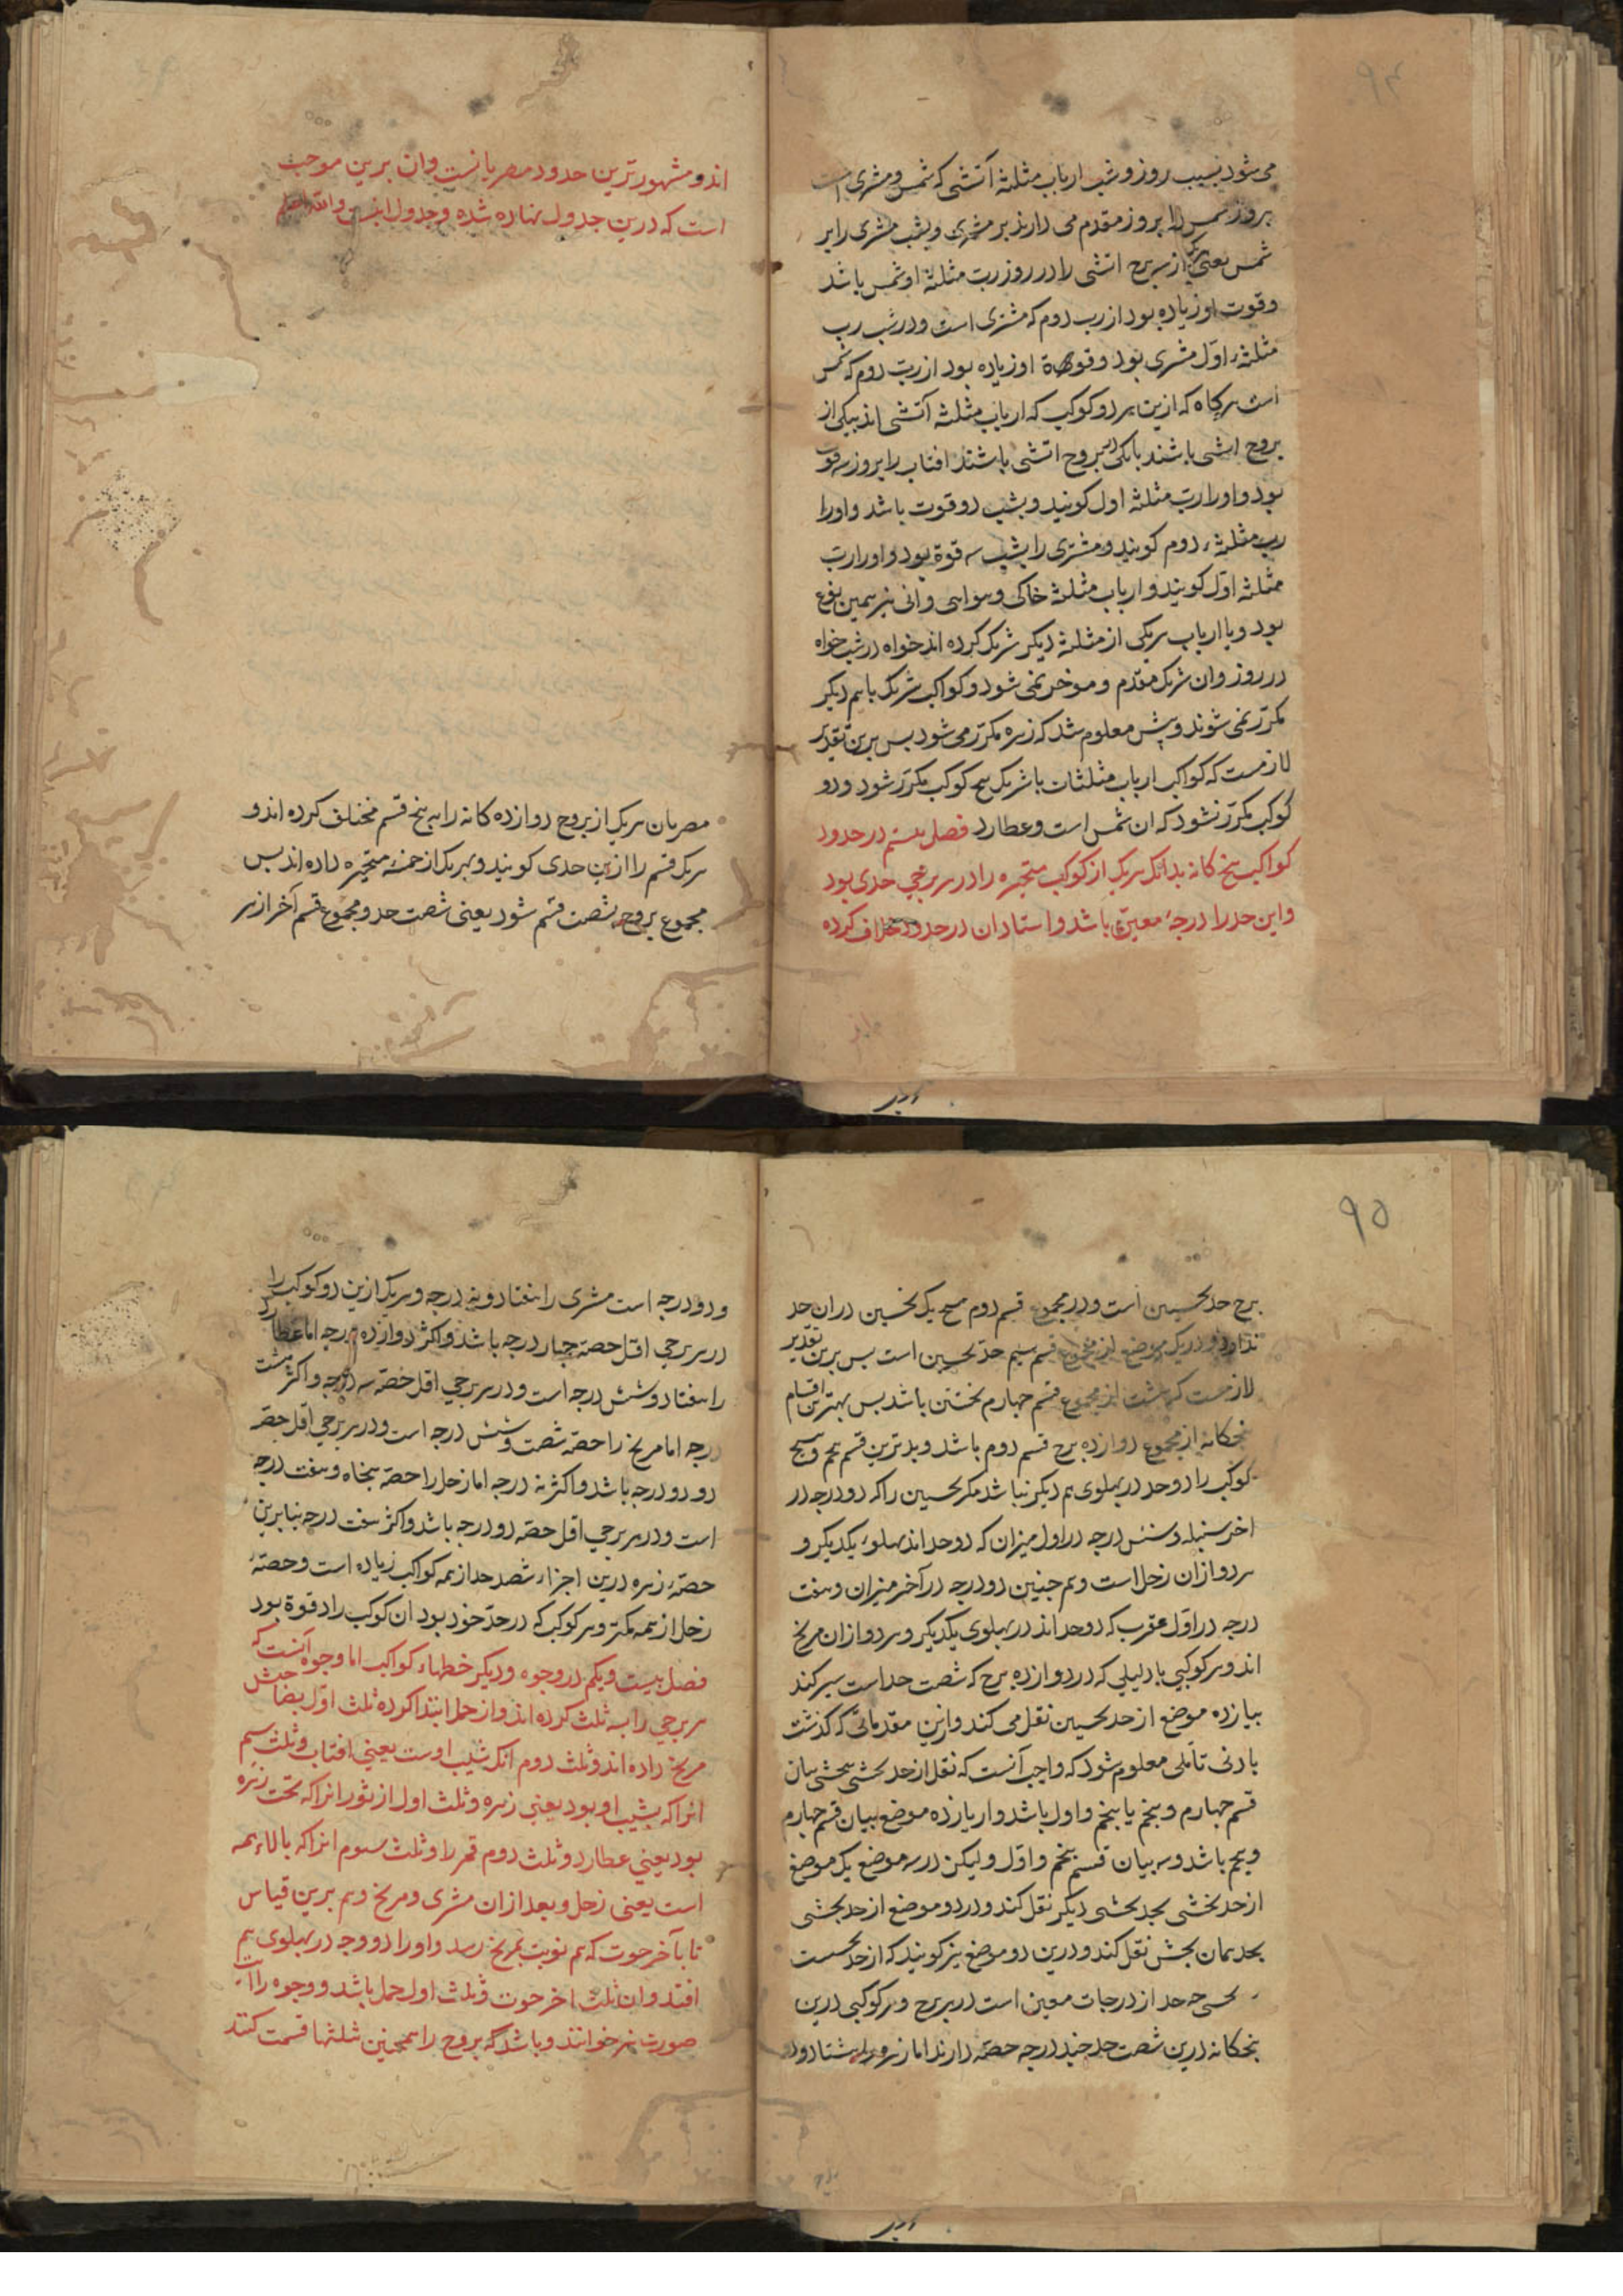 ۹۴
می شود بسبب روز و شب ارباب مثلثه آتشی که شمس و مشتری است
بروز شمس را بروز مقدم می دارند بر مشتری و بشب مشتری را بر
شمس یعنی هریک از سه برج اتشی را در روز رب مثلثه او شمس باشد
و قوت او زیاده بود از رب دوم که مشتری است و در شب رب
مثلثه اول مشتری بود و قوة او زیاده بود از رب دوم که شمس
است هرکاه که ازین هر دو کوکب که ارباب مثلثه آتشی اند بیکی از
بروج اتشی باشند بروج اتشی باشند افتاب را بروز سه قوت
بود و او را رب مثلثه اول کویند و بشب دو قوت باشد و او را
رب مثلثه دوم کویند و مشتری را بشب سه قوة بود و او را رب
مثلثه اول کویند و ارباب مثلثه خاکی و هوایی و ابی نیز همین نوع
بود و با ارباب هریکی از مثلثه دیکر شریک کرده اند خواه در شب خواه
در روز و ان شریک مقدم و موخر نمی شود و کواکب شریک با هم دیکر
مکرر نمی شوند و پیش معلوم شد که زهره مکرر می شود بس برین تقدیر
لازمست که کواکب ارباب مثلثات با شریک پنج کوکب مکرر شود و دو
کوکب مکرر نشود که ان شمس است و عطارد فصل بیستم در حدود
کواکب پنج کانه بدانک هریک از کوکب متحیره را در هر برجی حدی بود
و این حد را درجهٔ معین باشد و استادان در حدود خلاف کرده
اند و مشهورترین حدود مصریانست و ان برین موجب
است که درین جدول نهاده شده و جدول اینست والله اعلم
مصریان هریک از بروج دوازده کانه را به پنج قسم مختلف کرده اند و
هریک قسم را ازین حدی کویند و بهریک از خمسهٔ متحیره داده اند بس
مجموع بروج بشصت قسم شود یعنی شصت حد و مجموع قسم آخر از هر
۹۵
برج حد نحسین است و در مجموع قسم دوم هیچ یک نحسین در ان حد
ندارد و در یک موضع از مجموع قسم سیم حد نحسین است بس برین تقدیر
لازمست که هشت از مجموع قسم چهارم نحسین باشد بس بهترین اقسام
پنجکانه از مجموع دوازده برج قسم دوم باشد و بدترین قسم پنجم و هیچ
کوکب را دو حد در پهلوی هم دیکر نباشد مکر نحسین را که دو درجه در
اخر سنبله و شش درجه در اول میزان که دو حد اند پهلوی یکدیکر و
هر دو از ان زحل است و هم چنین دو درجه در آخر میزان و هفت
درجه در اول عقرب که دو حد اند در پهلوی یکدیکر و هر دو از ان مریخ
اند و هر کوکبی یا دلیلی که در دوازده برج که شصت حد است سیر کند
بیازده موضع از حد نحسین نقل می کند و ازین مقدماتی که کذشت
بادنی تاملی معلوم شود که واجب آنست که نقل از حد نحسی بنحسی میان
قسم چهارم و پنجم یا پنجم و اول باشد و از یازده موضع میان قسم چهارم
و پنجم باشد و سه میان قسم پنجم و اول و لیکن در سه موضع یک موضع
از حد نحسی بحد نحسی دیکر نقل کند و در دو موضع از حد نحسی
بحد همان نحس نقل کند و درین دو موضع نیز کویند که از حد نحسست
حد از درجات معین است در هر برج و هر کوکبی درین
پنجکانه درین شصت حد چند درجه حصه دارند اما زهره را هشتاد و دو
و دو درجه است مشتری را هفتاد و نه درجه و هریک ازین دو کوکب را
در هر برجی اقل حصه چهار درجه باشد و اکثر دوازده درجه اما عطارد
را هفتاد و شش درجه است و در هر برجی اقل حصه سه درجه و اکثر هشت
درجه اما مریخ را حصه شصت و شش درجه است و در هر برجی اقل حصه
دو دو درجه باشد و اکثر نه درجه اما زحل را حصه پنجاه و هفت درجه
است و در هر برجی اقل حصه دو درجه باشد و اکثر هفت درجه بنابرین
حصهٔ زهره درین اجزاء شصد حد از همه کواکب زیاده است و حصهٔ
زحل از همه کمتر و هر کوکب که در حد خود بود ان کوکب را دقوة بود
فصل بیست و یکم در وجوه و دیکر خطهاء کواکب اما وجوه آنست که
هر برجی را سه ثلث کرده اند و از حمل ابتدا کرده ثلث اول بصاحبش
مریخ داده اند و ثلث دوم انک بشیب اوست یعنی افتاب و ثلث سیم
انرا که بشیب او بود یعنی زهره و ثلث اول از ثور انرا که تحت زهره
بود یعنی عطارد و ثلث دوم قمر را و ثلث سوم انرا که بالاء همه
است یعنی زحل و بعد از ان مشتری و مریخ و هم برین قیاس
تا بآخر حوت که هم نوبت بمریخ رسد و او را دو وجه در پهلوی هم
افتد و ان ثلث اخر حوت و ثلث اول حمل باشد و وجوه را
صورت نیز خوانند و باشد که بروج را همچنین بثلثها قسمت کنند